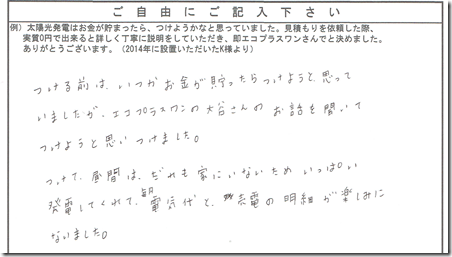 ご自由にご記入下さい
例）太陽光発電はお金が貯まったら、つけようかなと思っていました。見積もりを依頼した際、
実質0円で出来ると詳しく丁寧に説明をしていただき、即エコプラスワンさんでと決めました。
ありがとうございます。（2014年に設置いただいたK様より）
つける前は、いつかお金が貯ったらつけようと思って
いましたが、エコプラスワンの大谷さんのお話を聞いて
つけようと思いつけました。
つけて、昼間は、だれも家にいないためいっぱい
発電してくれて、毎月電気代と、売電の明細が楽しみに
なりました。